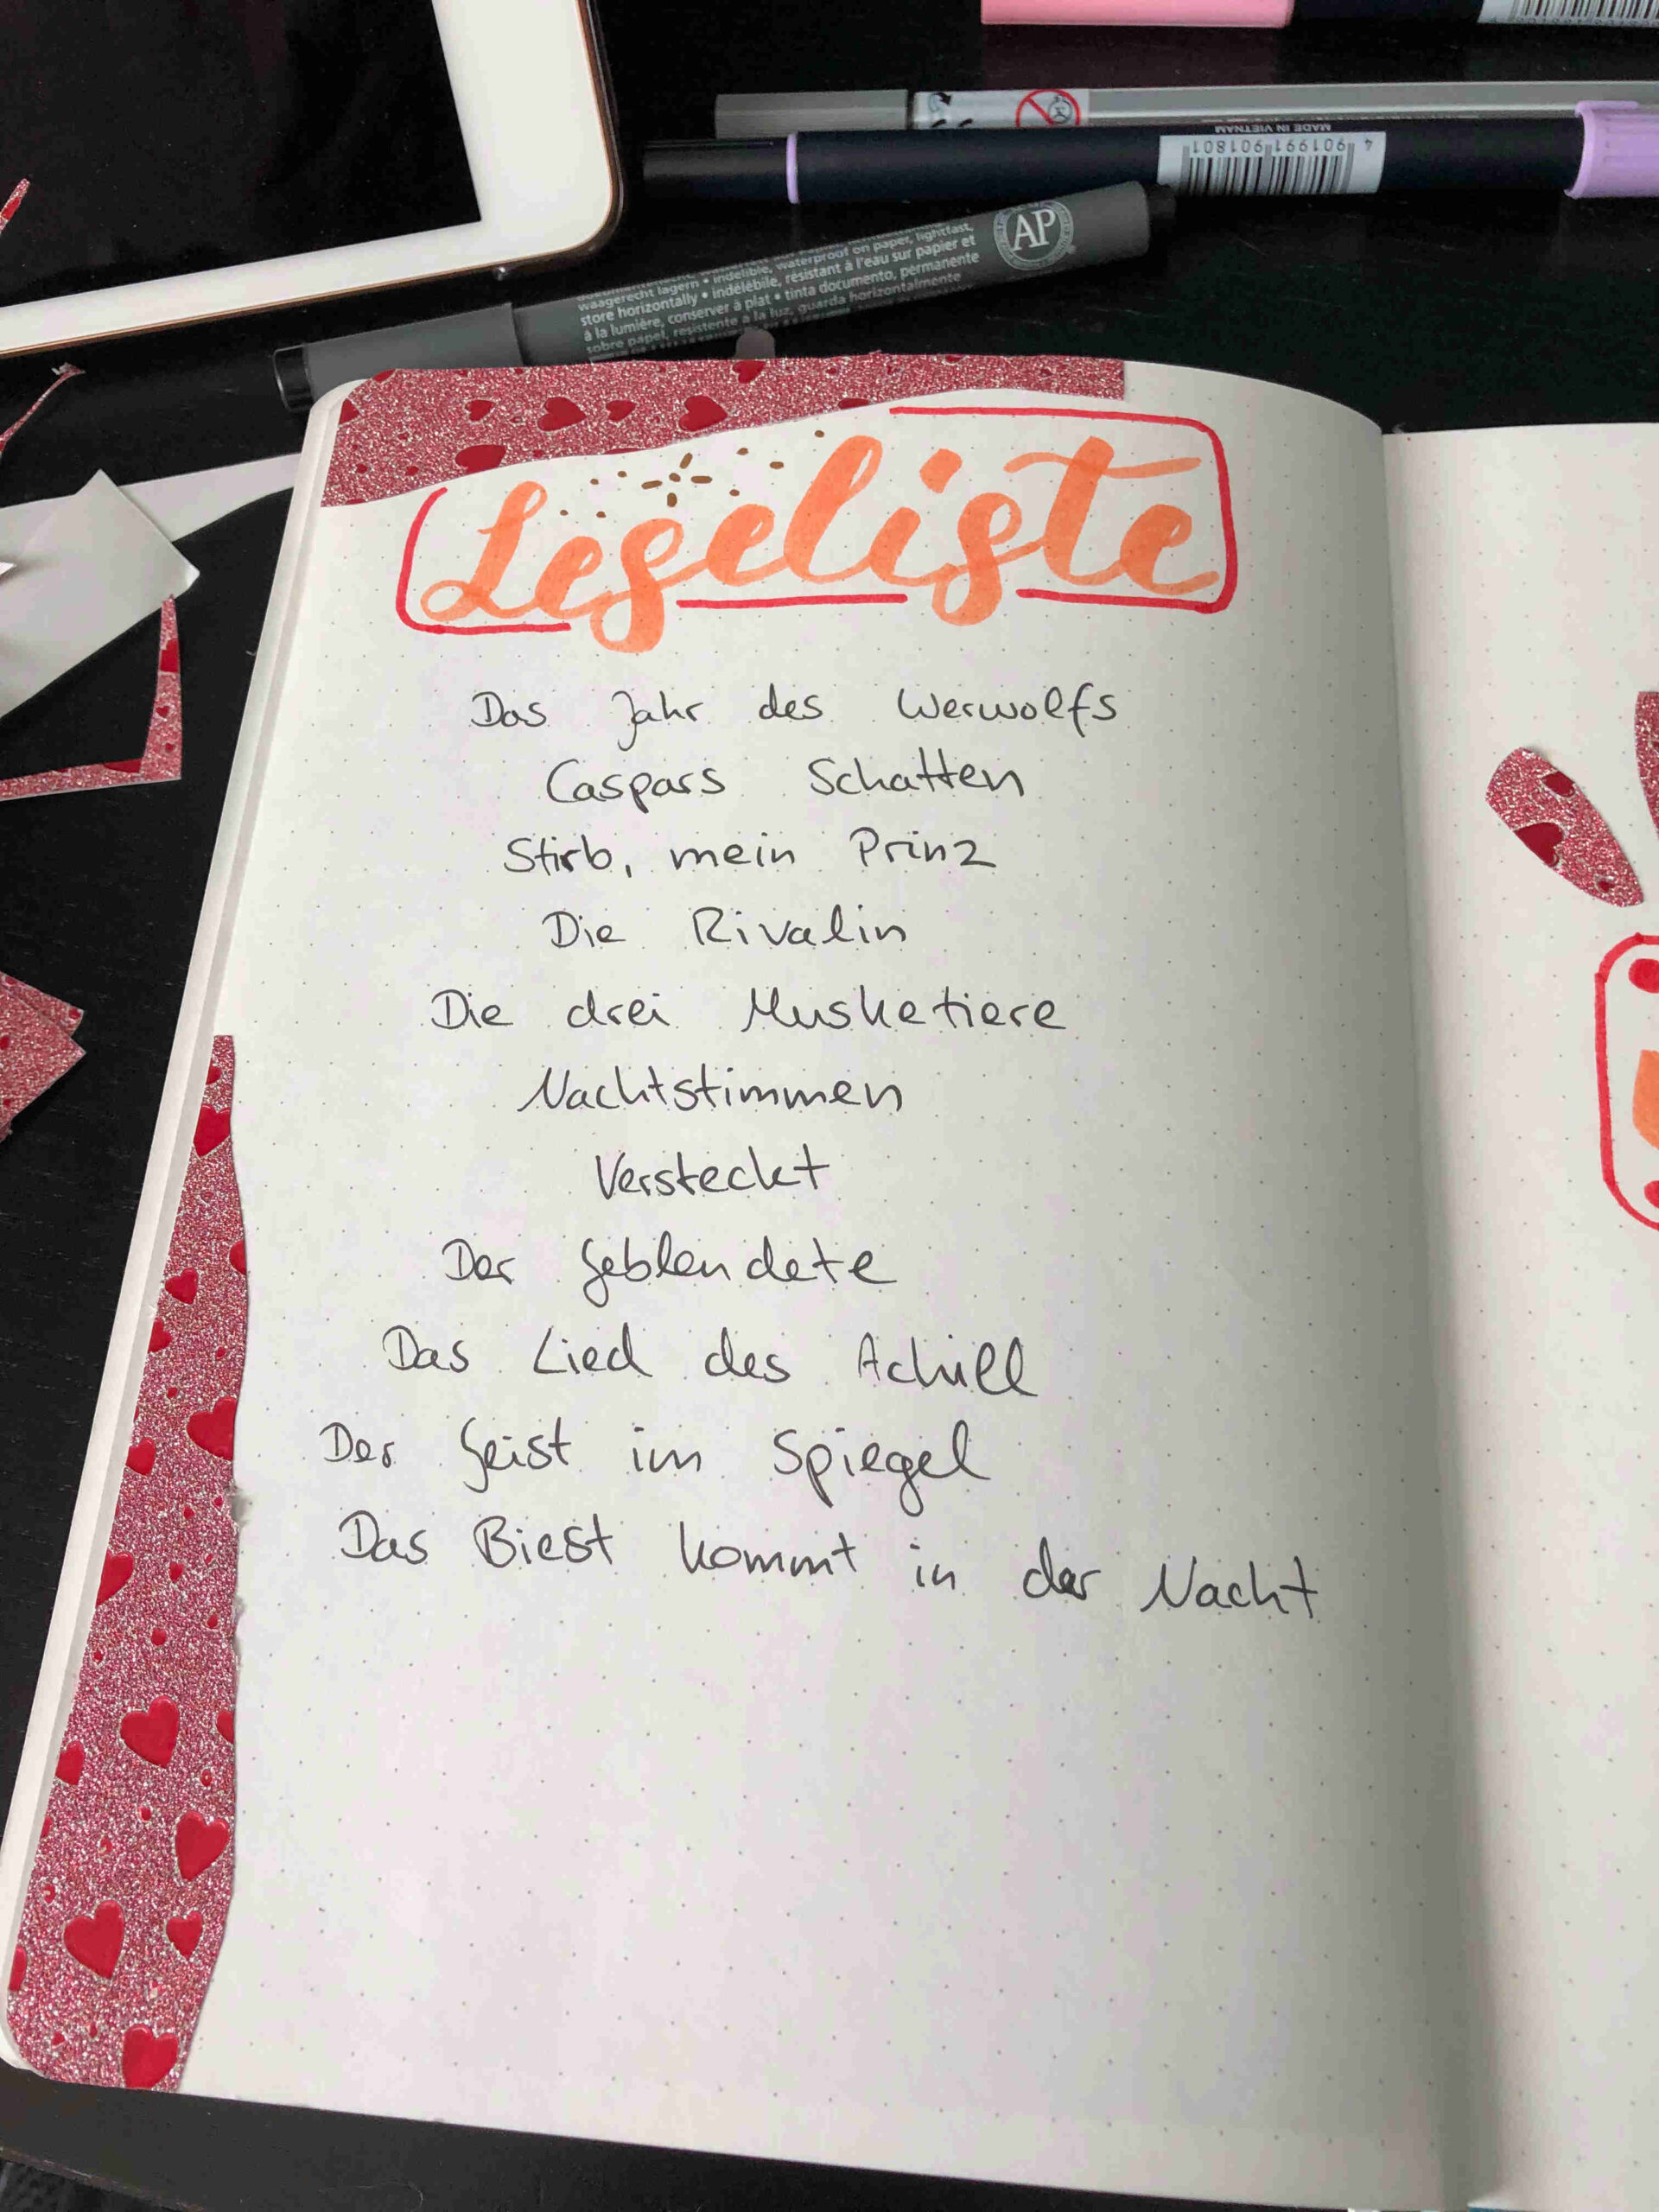 MADE IN VIETNAM
4 901991 669106 901801
waagerecht lagern • indelible, waterproof on paper, lightfast,
store horizontally • indélébile, résistant à l'eau sur papier et
à la lumière, conserver à plat • tinta documento, permanente
sobre papel, resistente a la luz, guarda horizontalmente
AP
Leseliste
Das Jahr des Werwolfs
Caspars Schatten
Stirb, mein Prinz
Die Rivalin
Die drei Musketiere
Nachtstimmen
Versteckt
Der Geblendete
Das Lied des Achill
Der Geist im Spiegel
Das Biest kommt in der Nacht